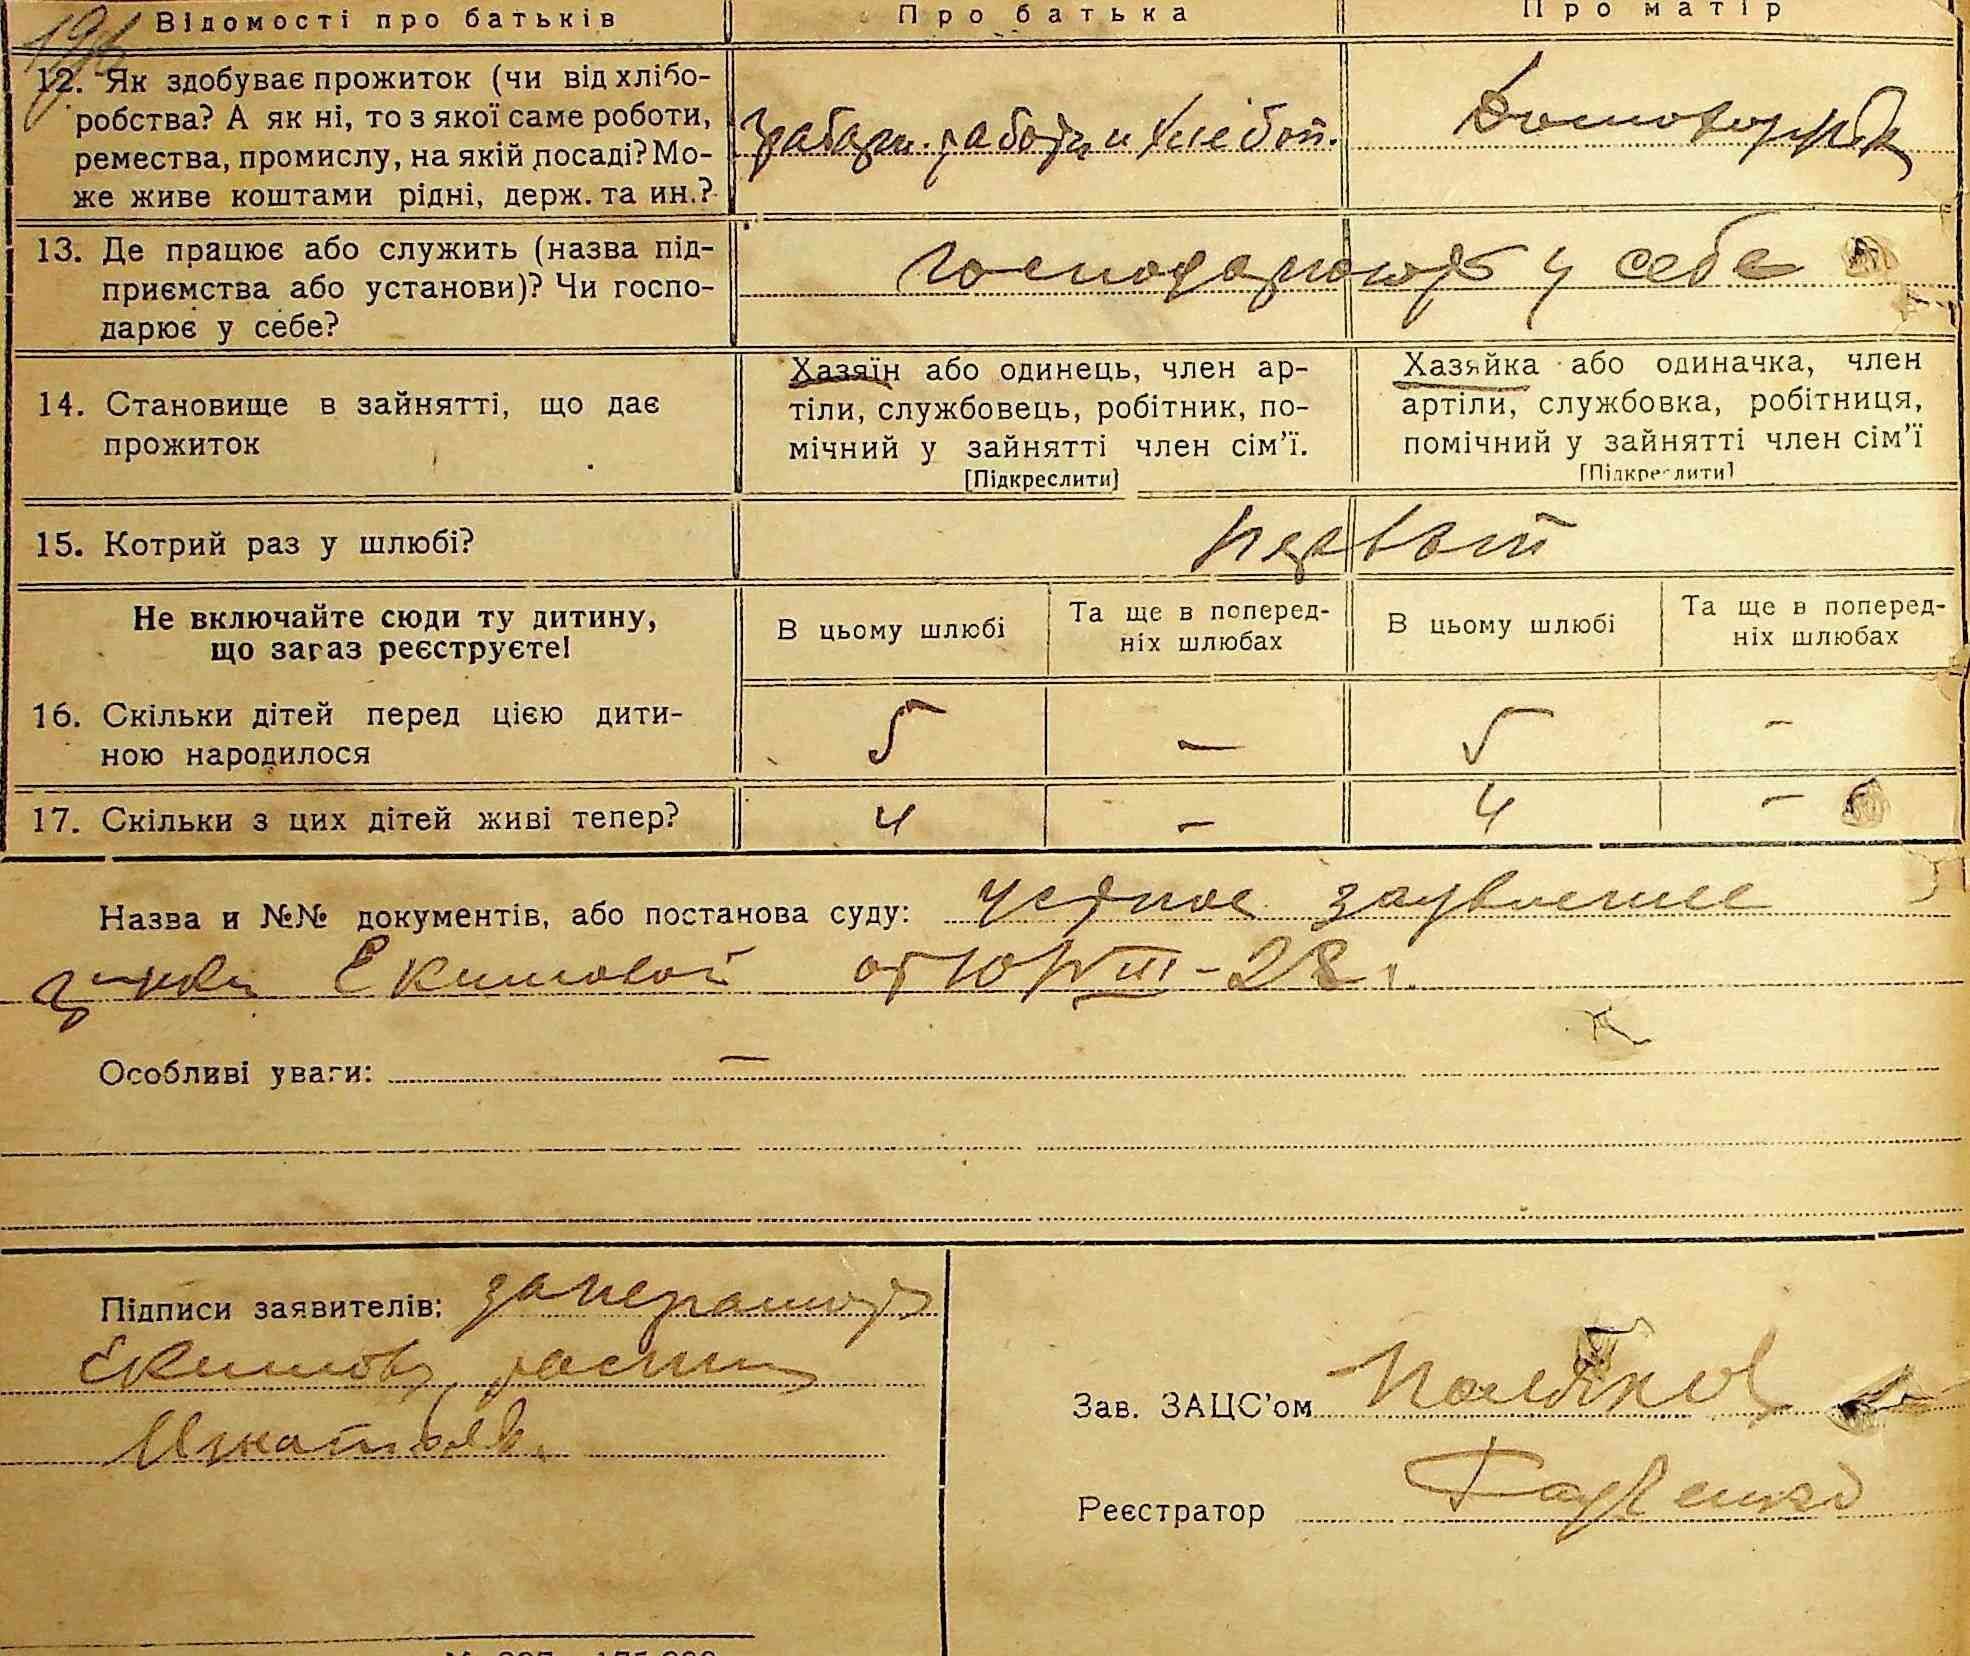 Відомості про батьків
Про батька
Про матір
12. Як здобуває прожиток (чи від хлібо-
робства? А як ні, то з якої саме роботи,
ремества, промислу, на якій посаді? Мо-
же живе коштами рідні, держ. та ин.?
работы и хлебоп.
13. Де працює або служить (назва під-
приємства або установи)? Чи госпо-
дарює у себе?
господарюють у себе
14. Становище в зайнятті, що дає
прожиток
Хазяїн або одинець, член ар-
тіли, службовець, робітник, по-
мічний у зайнятті член сім'ї.
[Підкреслити]
Хазяйка або одиначка, член
артіли, службовка, робітниця,
помічний у зайнятті член сім'ї
[Підкреслити]
15. Котрий раз у шлюбі?
первый
Не включайте сюди ту дитину,
що загаз реєструєте!
В цьому шлюбі
Та ще в поперед-
ніх шлюбах
В цьому шлюбі
Та ще в поперед-
ніх шлюбах
16. Скільки дітей перед цією дити-
ною народилося
5 – 5 –
17. Скільки з цих дітей живі тепер?
4 – 4 –
Назва и №№ документів, або постанова суду: устное заявление
Екимовой от 10/VIII-28 г.
Особливі уваги: –
Підписи заявителів: за неграмот
Екимову распис
Зав. ЗАЦС'ом Поляков
Реєстратор